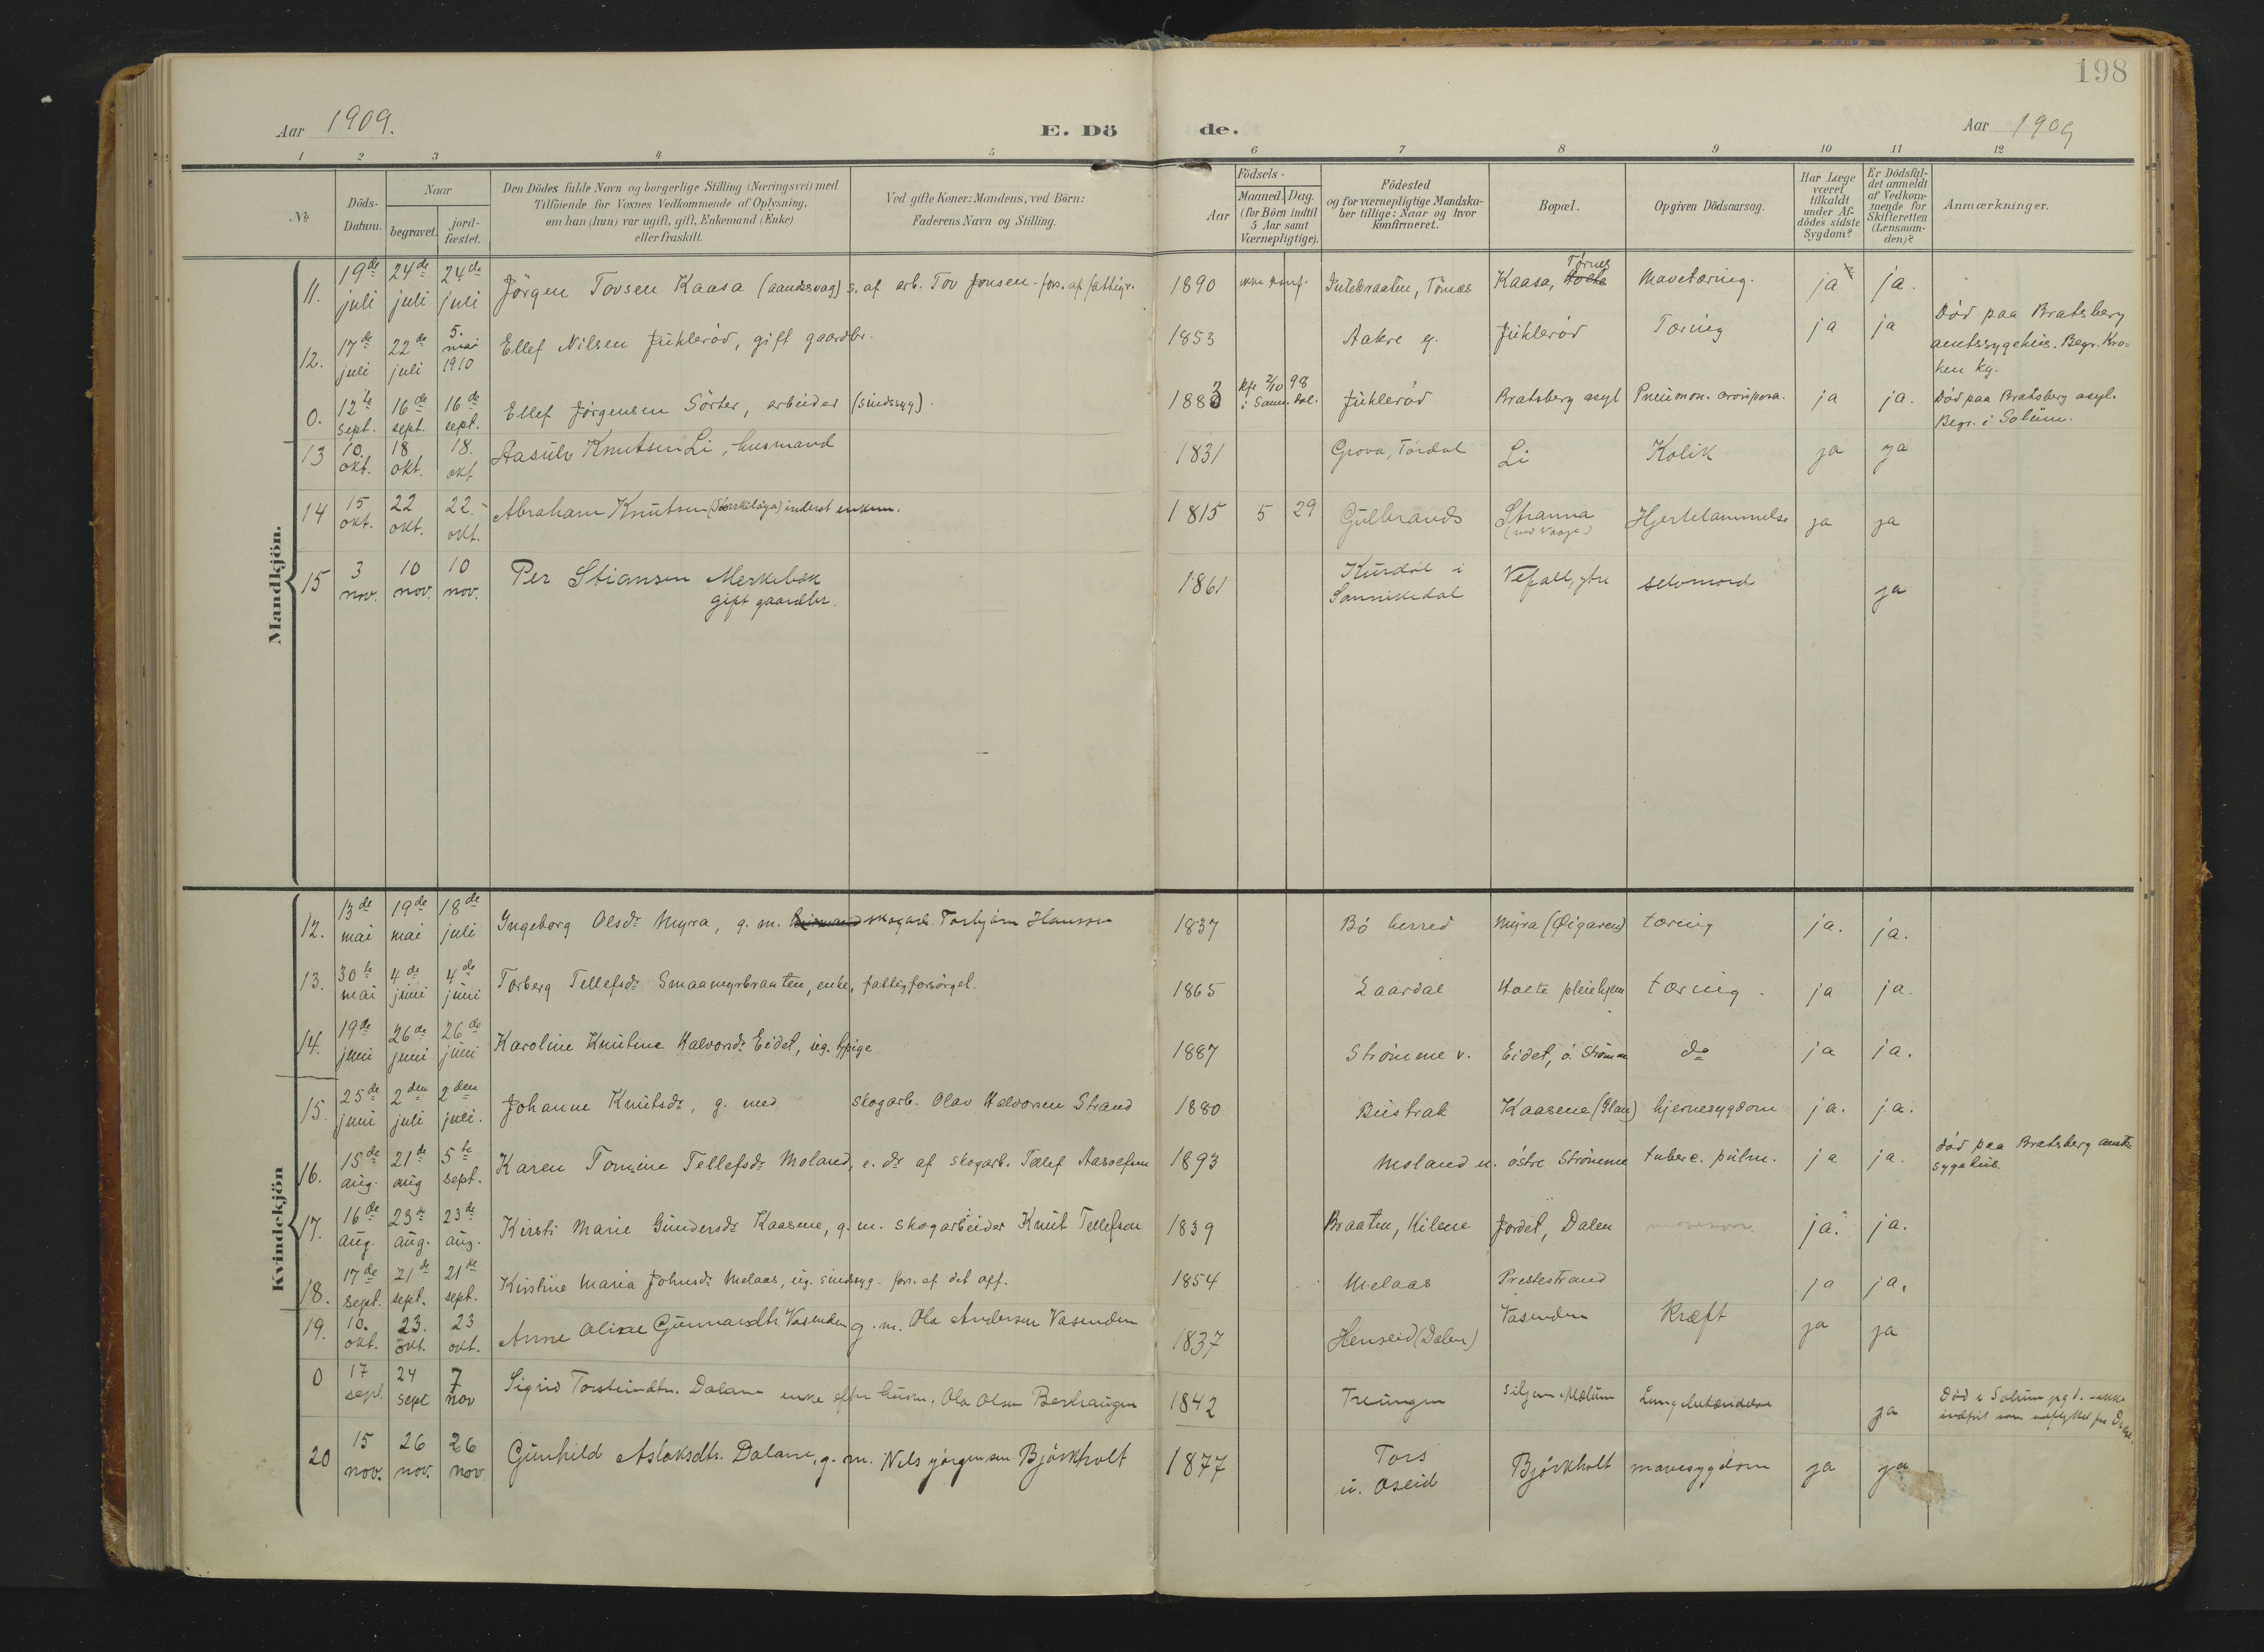 198
Aar 1909.
E. Dö de.
Aar 1909
1 2 3 4 5 6 7 8 9 10 11 12
No
Döds-Datum.
Naar
begravet.
jord-fæstet.
Den Dödes fulde Navn og borgerlige Stilling (Næringsvei) med
Tilföiende for Voxnes Vedkommende af Oplysning,
om han (hun) var ugift, gift, Enkemand (Enke)
eller fraskilt.
Ved gifte Koner: Mandens, ved Börn:
Faderens Navn og Stilling.
Födsels-
Aar
Maaned. Dag.
(for Börn indtil
5 Aar samt
Værnepligtige).
Födested
og for værnepligtige Mandska-
ber tillige: Naar og hvor
konfirmeret.
Bopæl.
Opgiven Dödsaarsag.
Har Læge
været
tilkaldt
under Af-
dödes sidste
Sygdom?
Er Dödsfal-
det anmeldt
af Vedkom-
mende for
Skifteretten
(Lensman-
den)?
Anmærkninger.
Mandkjön.
11. 19de juli 24de juli 24de juli Jörgen Tovsen Kaasa (aandssvag) s. af arb. Tov Jonsen - fors. af fattigv. 1890 ikke konf. Kaasa, Törnes Mavetæring. ja ja.
12. 17de juli 22de juli 5. mai 1910 Ellef Nilsen Juklerød, gift gaardbr. 1853 Aakre Juklerød Tæring ja ja Död paa Bratsberg
amtssygehus. Begr. Kro-
ken kg.
0. 12te sept. 16de sept. 16de sept. Ellef Jörgensen Sörter, arbeider (sindssyg). 1883 kfr 2/10 98 i Sann.dal. Juklerød Bratsberg asyl Pneumon. ja ja. Död paa Bratsberg asyl.
Begr. i Solum.
13 10. okt. 18 okt. 18. okt Aasulv Knutsen Li, husmand 1831 Grova, Tördal Li Kolik ja ja
14 15 okt. 22 okt. 22. okt. Abraham Knutsen inderst enkem. 1815 5 29 Gulbrands Stranna Hjertelammelse ja ja
15 3 nov. 10 nov. 10 nov. Per Stiansen Merkebæk
gift gaardbr. 1861 Kurdöl i
Sannikedal Vefall, ytre selvmord ja
Kvindekjön
12. 13de mai 19de mai 18de juli Ingeborg Olsdr Myra, g. m. skogarb. Torbjörn Hansson 1837 Bö herred Myra (Öigaren) tæring ja. ja.
13. 30te mai 4de juni 4de juni Torberg Tellefsdr Smaamyrbraaten, enke, fattigforsörget. 1865 Laardal Holte pleiehjem tæring. ja ja.
14. 19de juni 26de juni 26de juni Karoline Knutine Halvorsdr Eidet, ug. pige 1887 Strömme v. Eidet, ö. Strömme do ja ja.
15. 25de juni 2den juli 2den juli. Johanne Knutsdr, g. med skogarb. Olav Halvorsen Strand 1880 Bustrak Kaasene hjernesygdom ja. ja.
16. 15de aug. 21de aug 5te sept. Karen Tomine Tellefsdr Moland, e. dr af skogarb. Tellef Aassefsen 1893 Moland u. östre Strömme tuberc. pulm. ja ja. död paa Bratsberg amts-
sygehus.
17. 16de aug. 23de aug. 23de aug. Kirsti Marie Gundersdr Kaasene, g. m. skogarbeider Knut Tellefsen 1839 Braaten, Kilene Jordet, Dalen ja. ja.
18. 17de sept. 21de sept. 21de sept. Kirstine Maria Johnsdr Melaas, ug. sindssyg - fors. af det off. 1854 Melaas Prestestrand ja ja.
19. 10. okt. 23. okt. 23 okt. Anne Oline Gunnarsdtr. Vasenden g. m. Ola Andersen Vasenden 1837 Henseid (Dalen) Vasenden Kræft ja ja
0 17 sept. 24 sept 7 nov Sigrid Torsteindtr. Dalane enke efter husm. Ola Olsen Berhaugen 1842 Treungen Siljan, Mælum Lungebetændelse ja Död i Solum
20 15 nov. 26 nov. 26 nov. Gunhild Aslaksdtr. Dalane, g. m. Nils Jörgensen Björkholt 1877 Tors
u. Oseid Björkholt mavesygdom ja ja